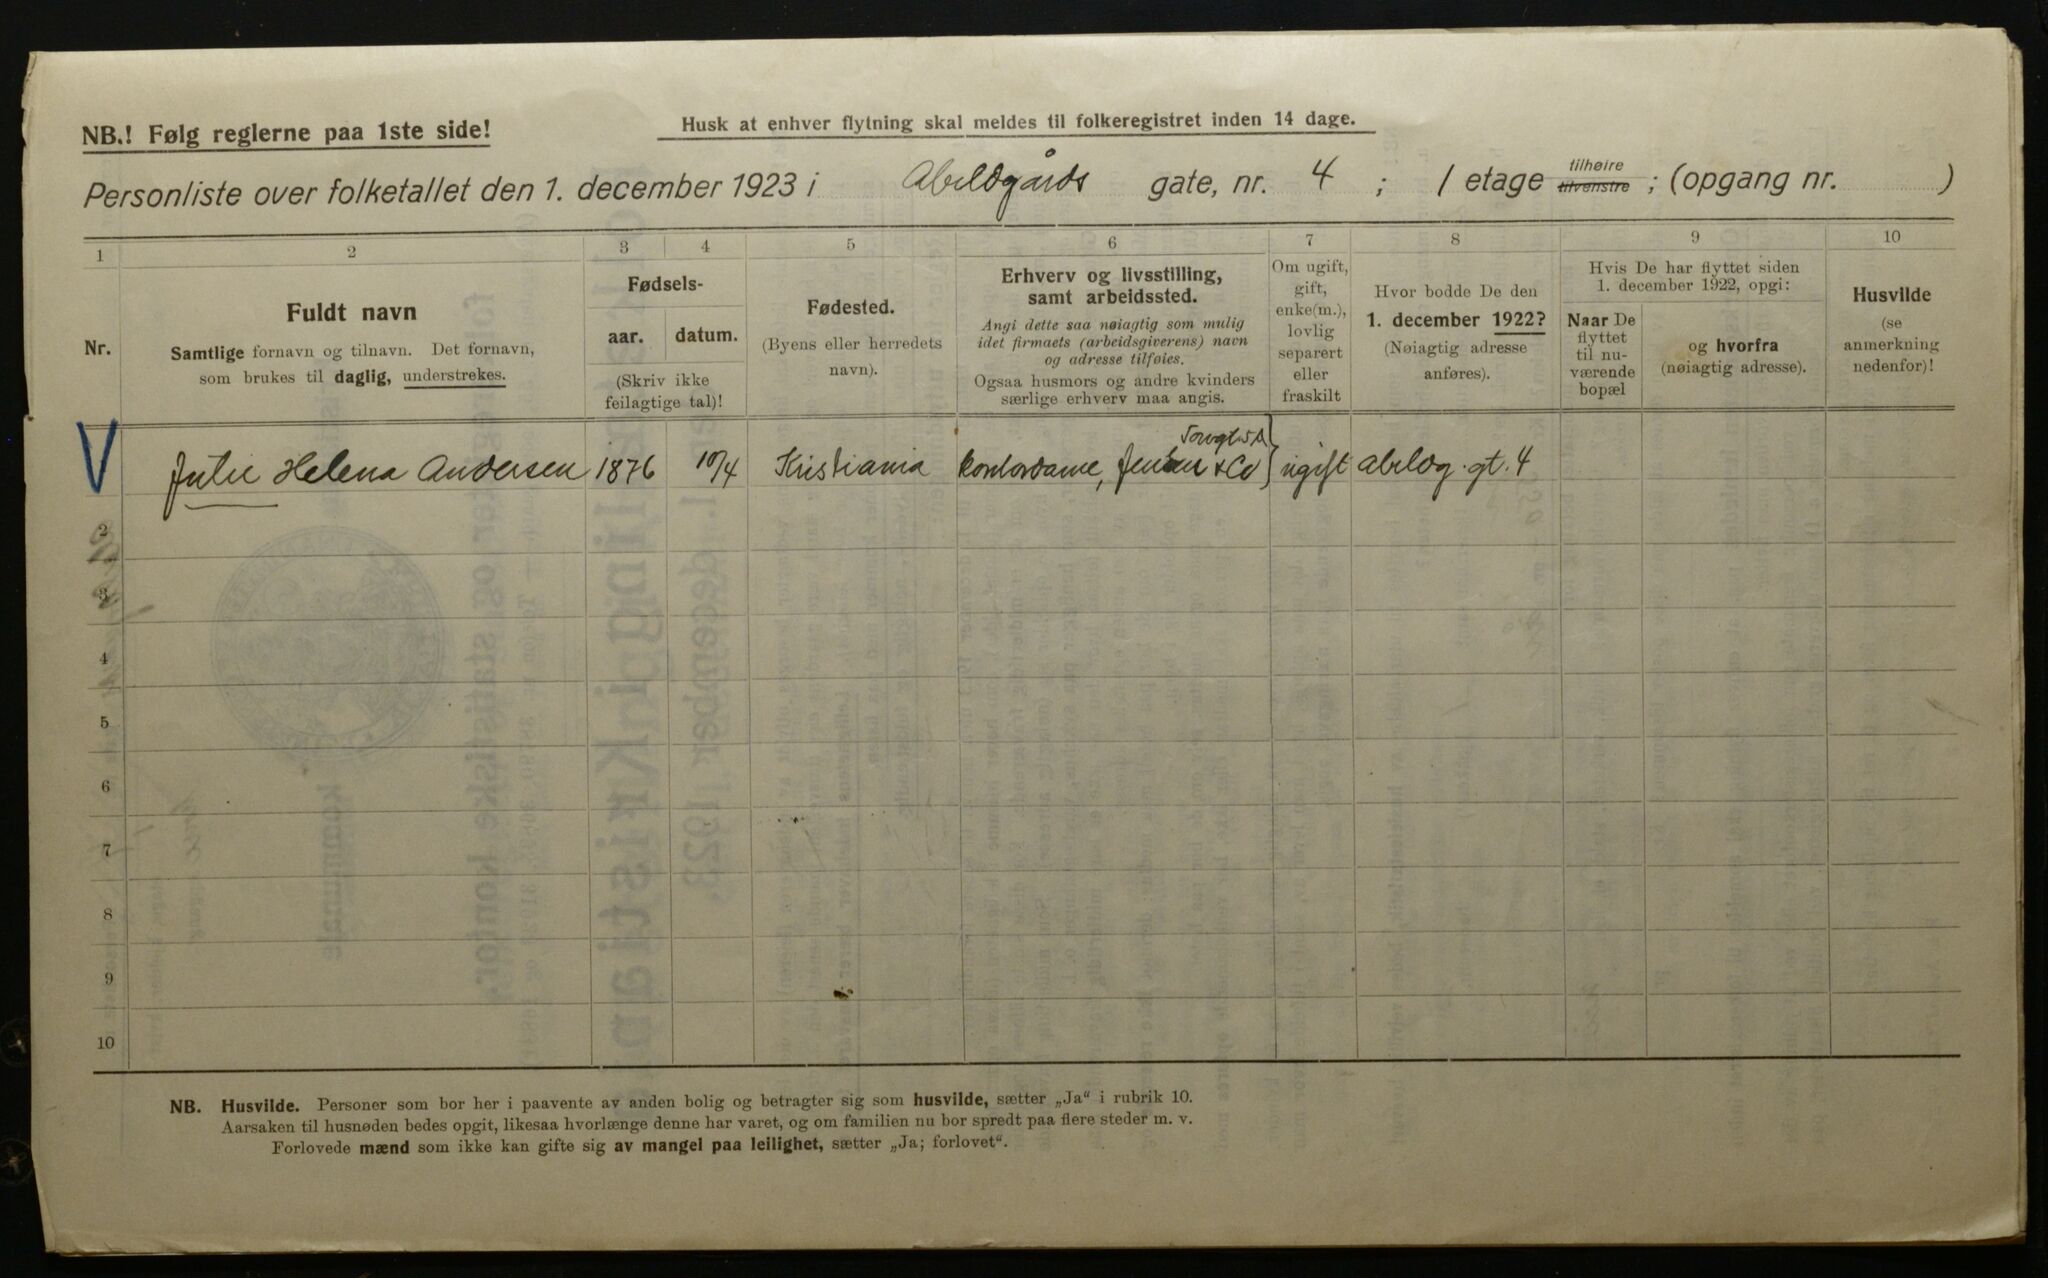 NB.! Følg reglerne paa 1ste side!
Husk at enhver flytning skal meldes til folkeregistret inden 14 dage.
Personliste over folketallet den 1. december 1923 i Abeldgårds gate, nr. 4 ; 1 etage tilhøire tilvenstre ; (opgang nr. )
1 2 3 4 5 6 7 8 9 10
Nr.
Fuldt navn
Samtlige fornavn og tilnavn. Det fornavn,
som brukes til daglig, understrekes.
Fødsels-
aar. datum.
(Skriv ikke
feilagtige tal)!
Fødested.
(Byens eller herredets
navn).
Erhverv og livsstilling,
samt arbeidssted.
Angi dette saa nøiagtig som mulig
idet firmaets (arbeidsgiverens) navn
og adresse tilføies.
Ogsaa husmors og andre kvinders
særlige erhverv maa angis.
Om ugift,
gift,
enke(m.),
lovlig
separert
eller
fraskilt
Hvor bodde De den
1. december 1922?
(Nøiagtig adresse
anføres).
Hvis De har flyttet siden
1. december 1922, opgi:
Naar De
flyttet
til nu-
værende
bopæl
og hvorfra
(nøiagtig adresse).
Husvilde
(se
anmerkning
nedenfor)!
Julie Helena Andersen 1876 10/4 Kristiania kontordame, Jensen & Co ugift abeldg. gt. 4
2
3
4
5
6
7
8
9
10
NB. Husvilde. Personer som bor her i paavente av anden bolig og betragter sig som husvilde, sætter „Ja“ i rubrik 10.
Aarsaken til husnøden bedes opgit, likesaa hvorlænge denne har varet, og om familien nu bor spredt paa flere steder m. v.
Forlovede mænd som ikke kan gifte sig av mangel paa leilighet, sætter „Ja; forlovet“.